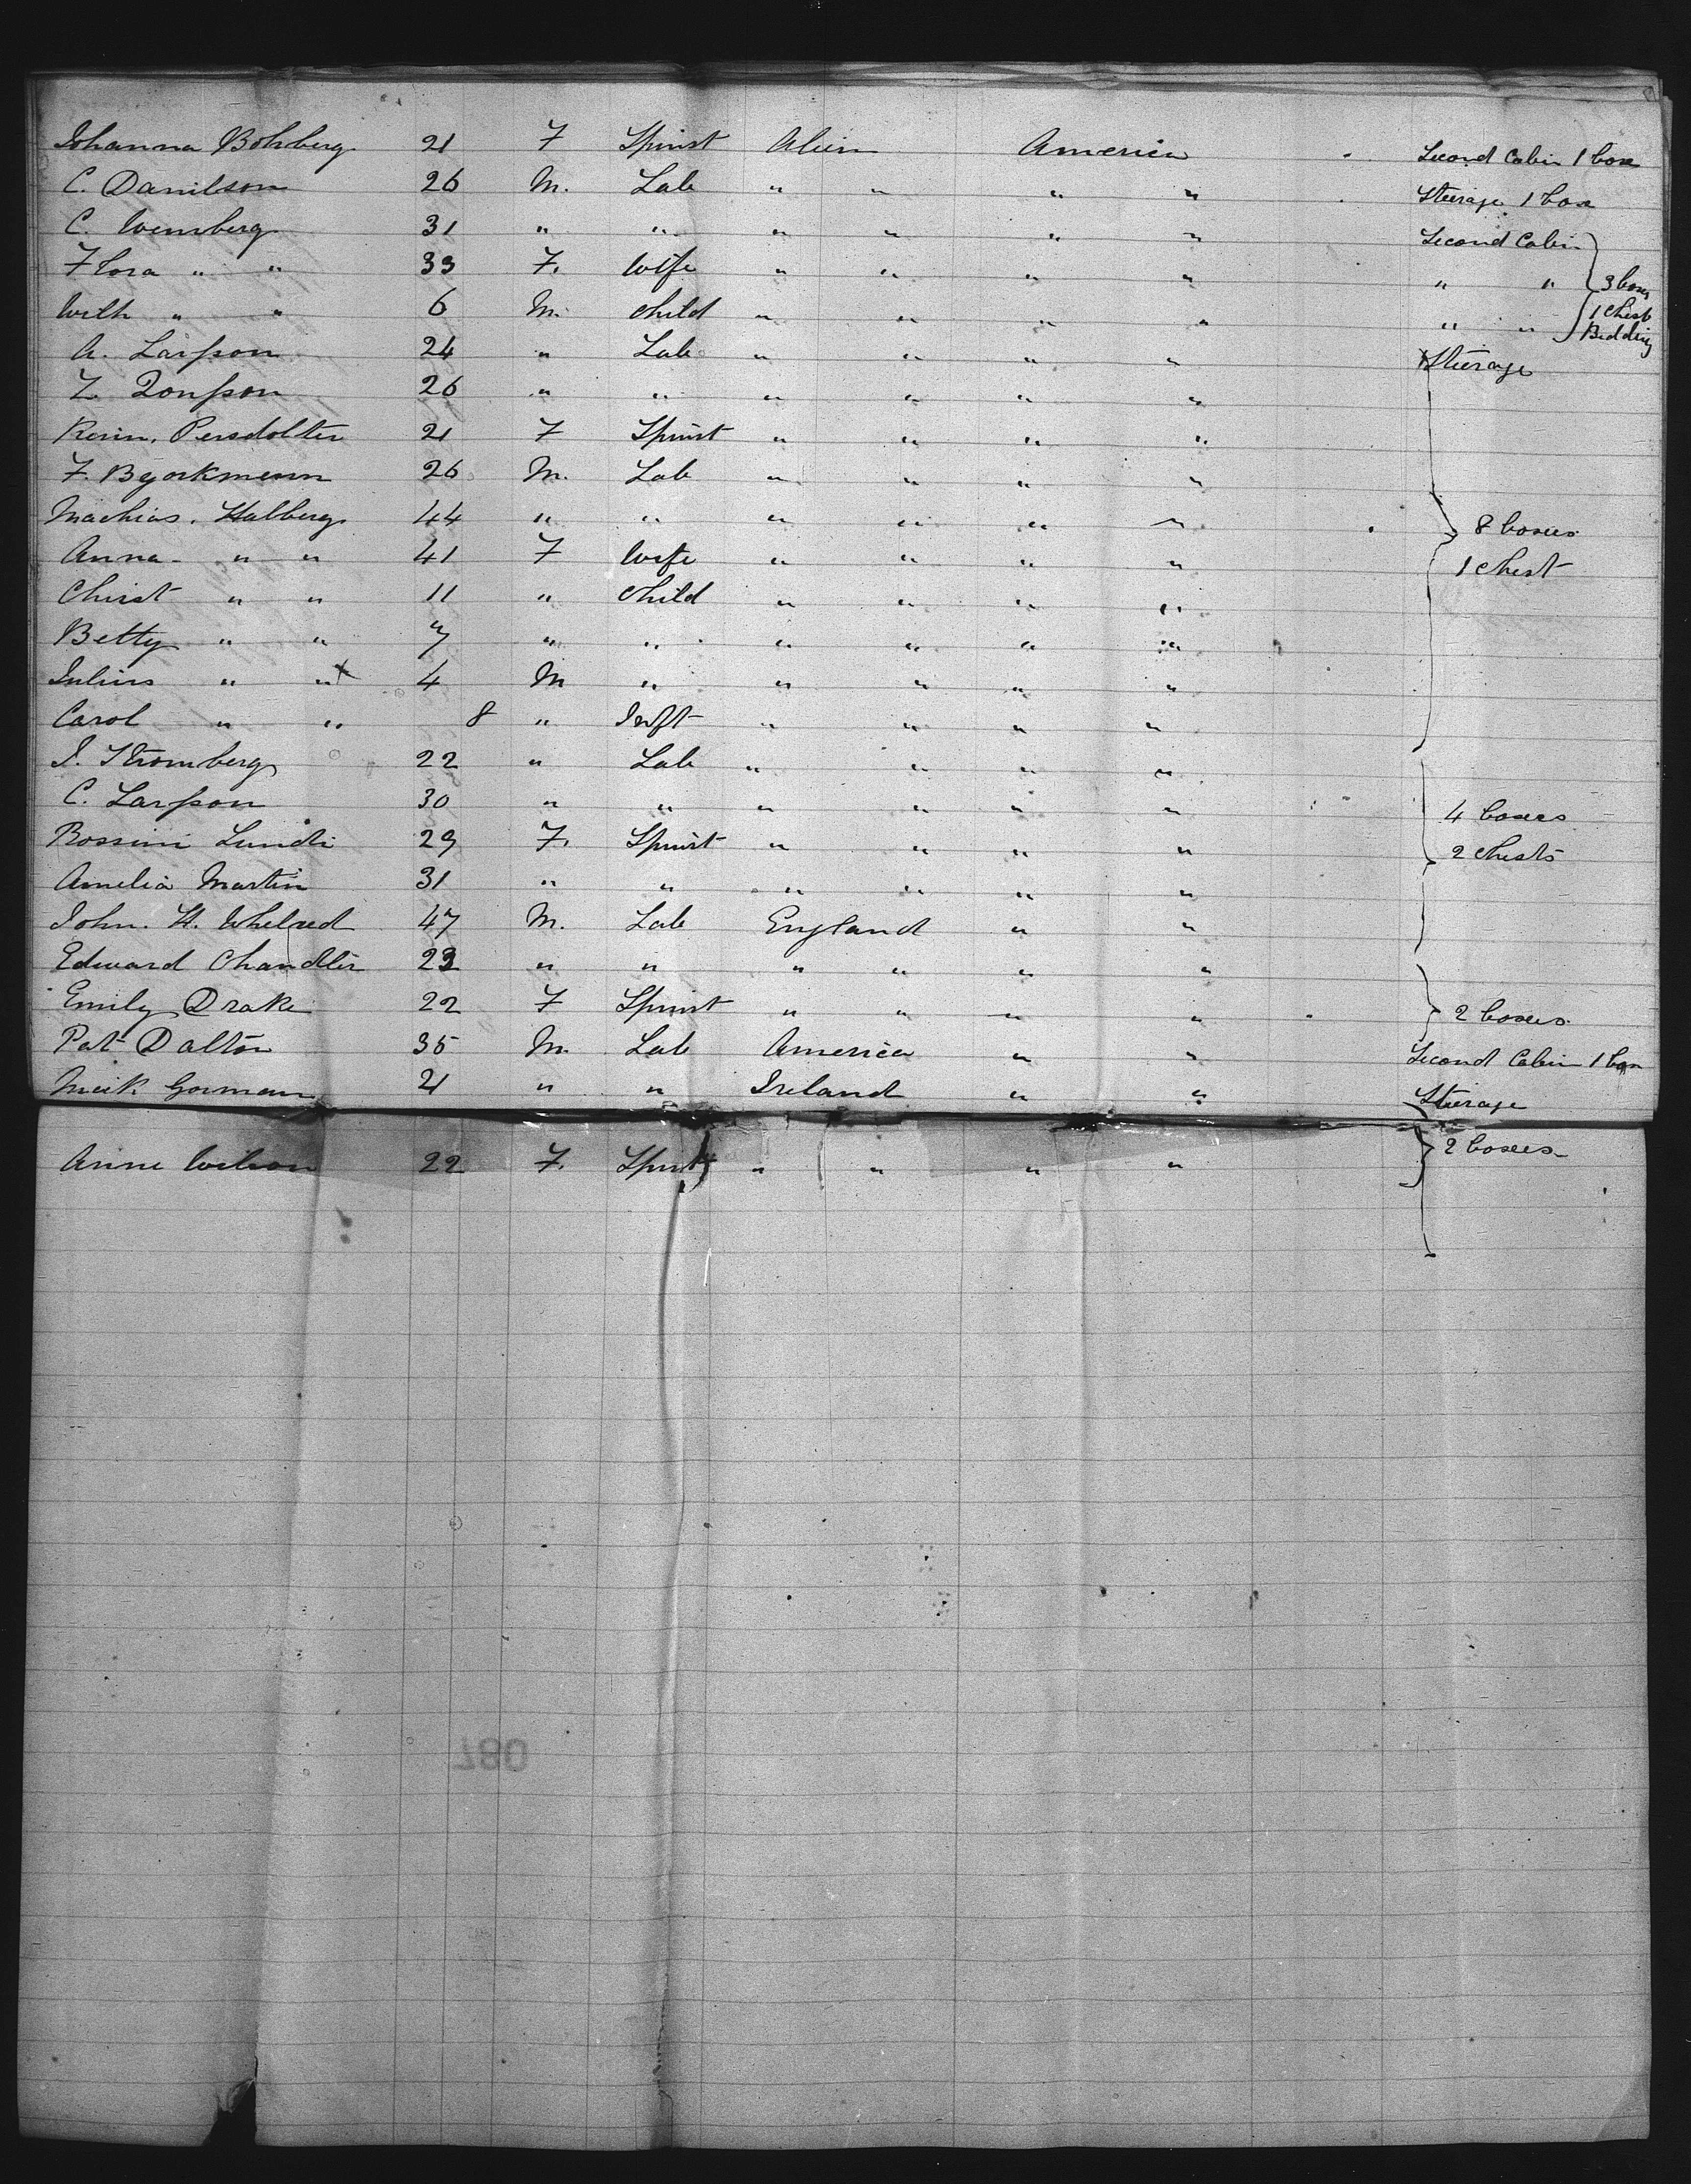 Johanna Bohberg 21 F Spinst Alien America Second Cabin 1 box
C. Danilson 26 M. Lab " " " " Steerage 1 box
C. Wensberg 31 " " " " " " Second Cabin
Flora " " 33 F. Wife " " " " " " 3 boxes
Wilh " " 6 M. Child " " " " " " 1 Chest Bedding
A. Larsson 24 " Lab " " " " Steerage
Z. Jonsson 26 " " " " " "
Kerin. Persdolter 21 F Spinst " " " "
F. Byorkmenn 26 M. Lab " " " "
Machias. Halberg 44 " " " " " " 8 boxes
Anna " " 41 F Wife " " " " 1 Chest
Christ " " 11 " Child " " " "
Betty " " 7 " " " " " "
Julius " " 4 M " " " " "
Carol " " 8 " Inft " " " "
I. Stromberg 22 " Lab " " " "
C. Larsson 30 " " " " " " 4 boxes
Rossini Lundi 29 F. Spinst " " " " 2 Chests
Amelia Martin 31 " " " " " "
John. H. Whelred 47 M. Lab England " "
Edward Chandler 23 " " " " " "
Emily Drake 22 F Spinst " " " " 2 boxes
Pat Dalton 35 M. Lab America " " Second Cabin 1 box
Meik Gorman 21 " " Ireland " " Steerage
Anne Wilson 22 F. Spinst " " " " 2 boxes
087